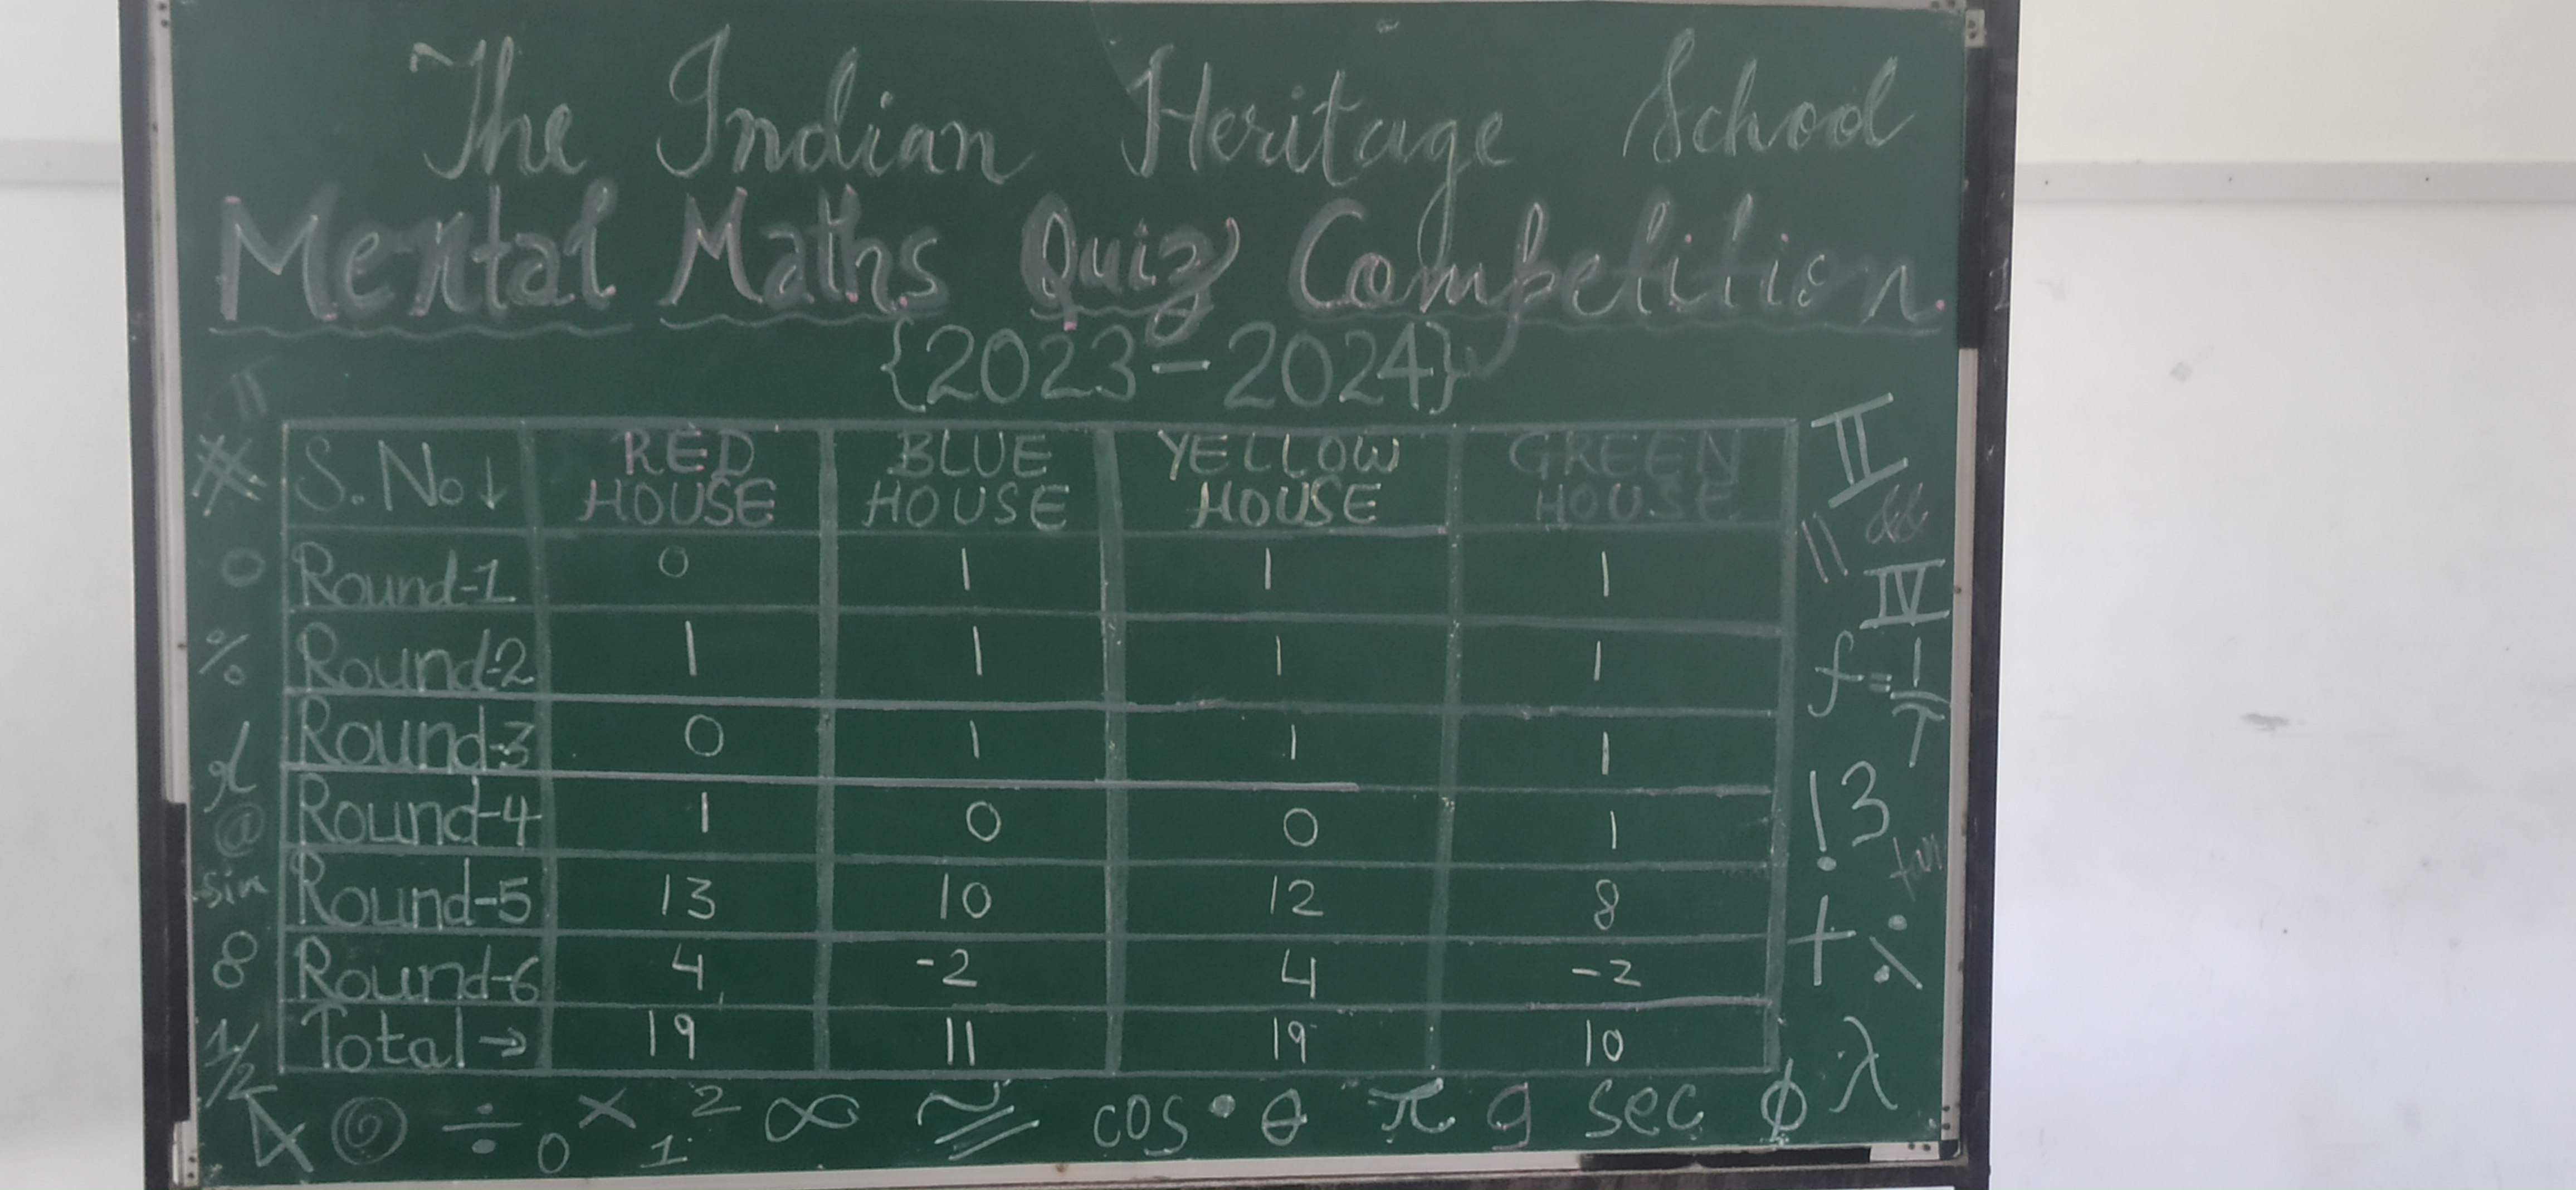 The Indian Heritage School
Mental Maths Quiz Competition
{2023-2024}
S.No↓ RED HOUSE BLUE HOUSE YELLOW HOUSE GREEN HOUSE
Round-1 0 1 1 1
Round-2 1 1 1 1
Round-3 0 1 1 1
Round-4 1 0 0 1
Round-5 13 10 12 8
Round-6 4 -2 4 -2
Total→ 19 11 19 10
#
0
%
@
sin
8
1/2
II
||
&&
IV
f=1/T
!3
tan
+ ÷
λ
÷ 0 × 1 2 ∞ ≅ cos • θ π g sec φ